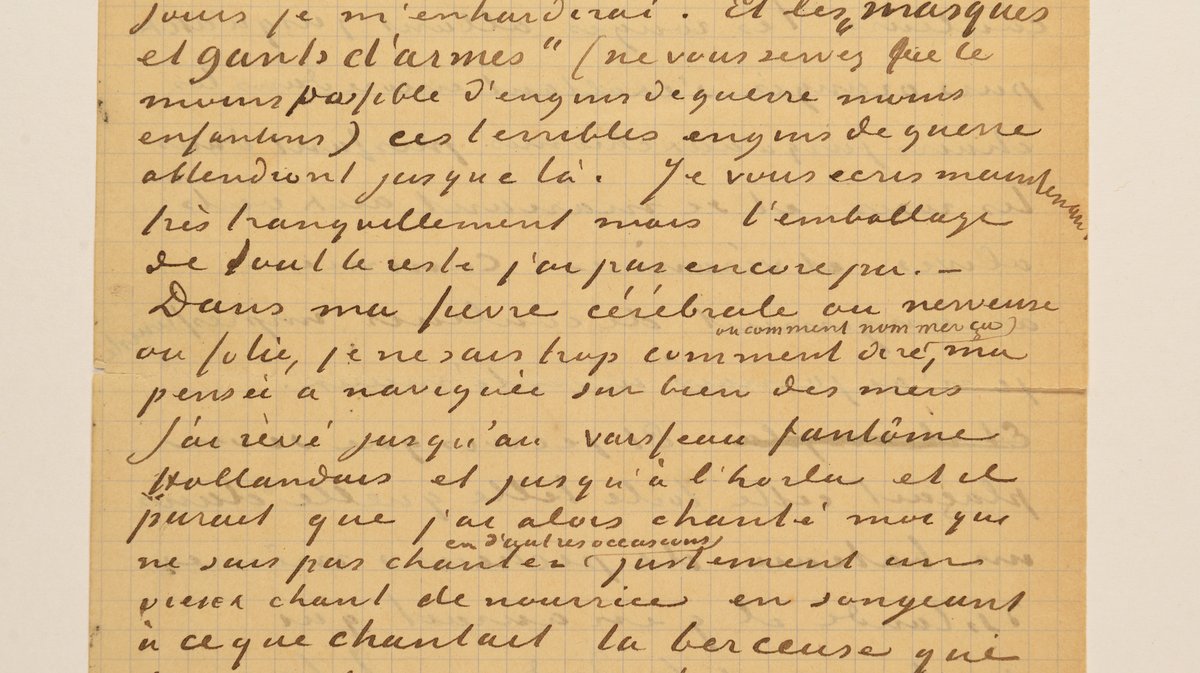 jours je m'enhardirai. Et les „masques
et gants d'armes" (ne vous servez que le
moins possible d'engins de guerre moins
enfantins) ces terribles engins de guerre
attendront jusque là. Je vous ecris maintenant
très tranquillement mais l'emballage
de tout le reste j'ai pas encore pu. —
Dans ma fievre cérébrale ou nerveuse
ou comment nommer ça)
ou folie, je ne sais trop comment dire, ma
pensée a naviguée sur bien des mers
J'ai rêvé jusqu'au vaisseau fantôme
Hollandais et jusqu'à l'horla et il
parait que j'ai alors chanté moi qui
en d'autres occasions)
ne sais pas chanter justement un
vieux chant de nourrice en songeant
à ce que chantait la berceuse qui